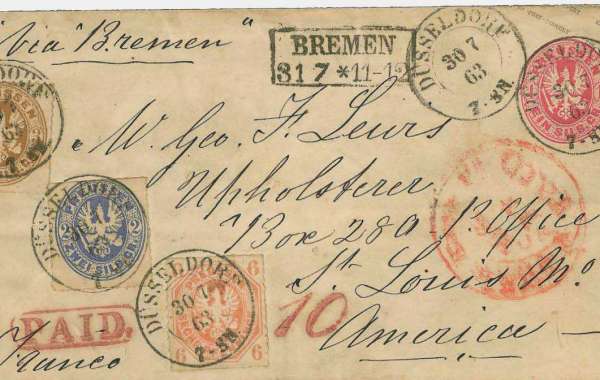 "via Bremen"
BREMEN
31 7 * 11-12
DÜSSELDORF
30 7
63
7-8N.
DÜSSELDORF
30 7
63
7-8N.
EIN SILB.GR.
PREUSSEN
2
2
ZWEI SILBGR.
DÜSSELDORF
DÜSSELDORF
30 7
63
7-8N
6
6
6
6
W. Geo. F. Leurs
Upholsterer
Box 280 P. Office
St. Louis Mo.
America
10
PAID.
franco